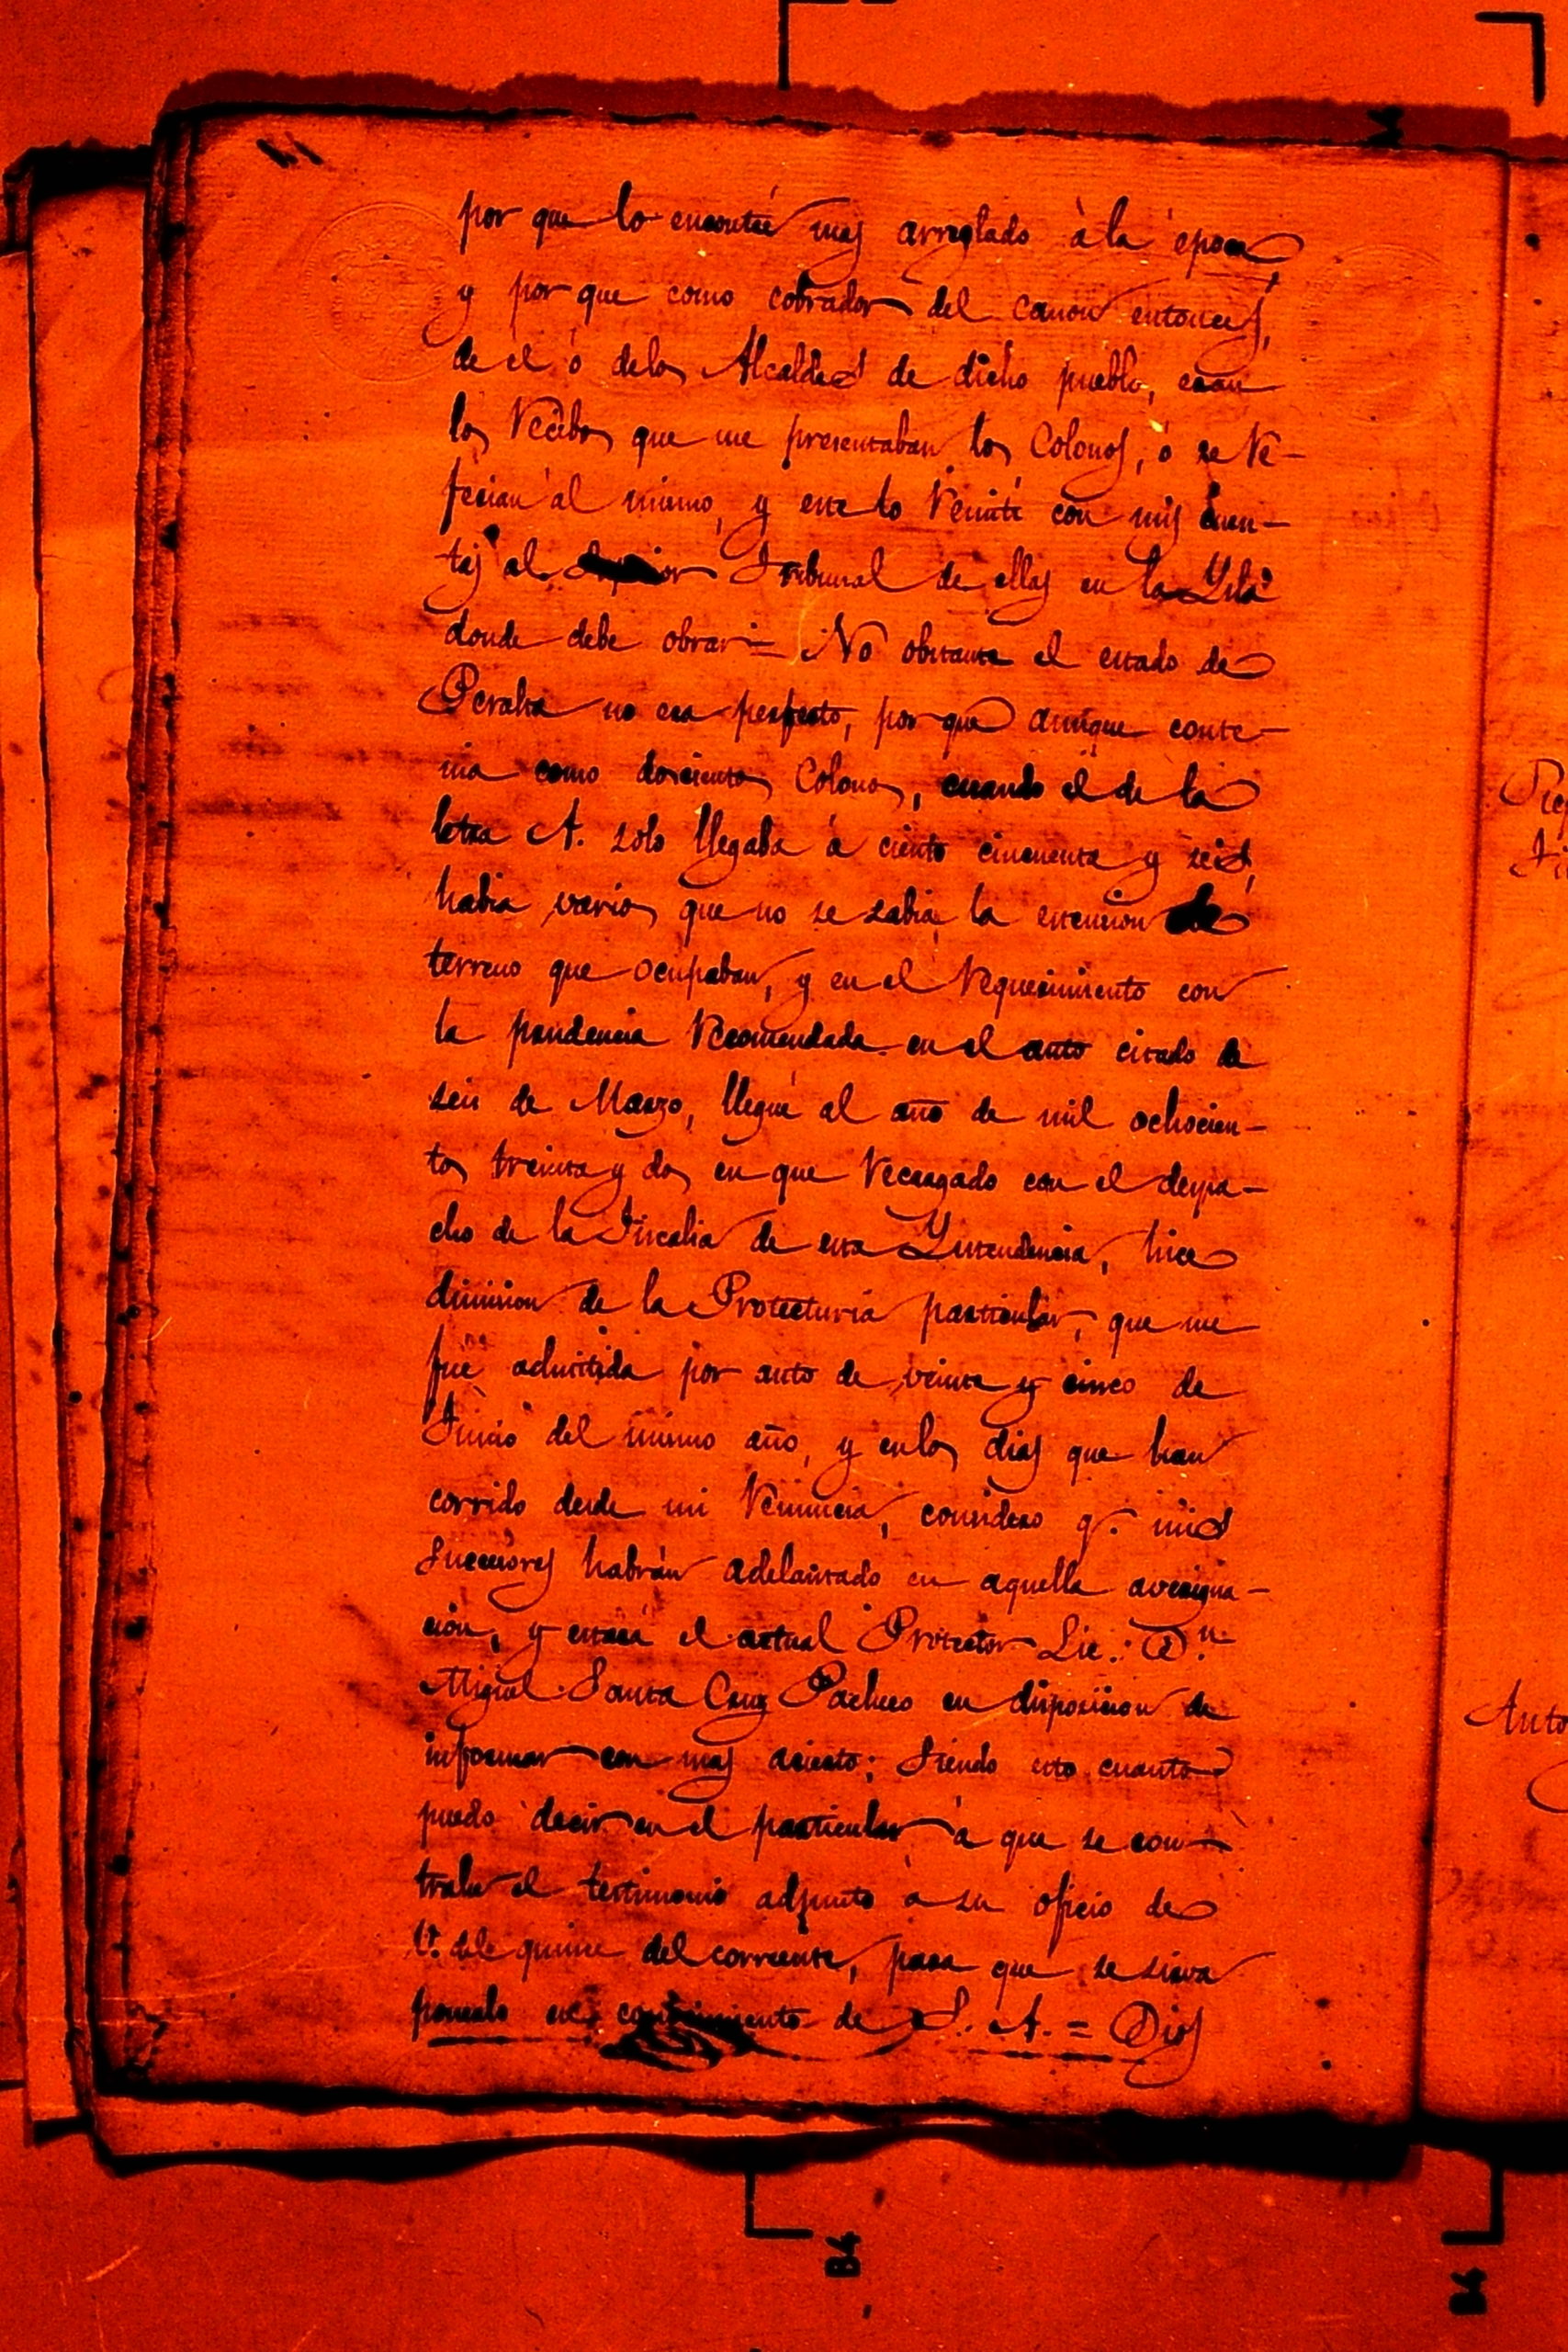 por que lo encontré mas arreglado à la época,
y por que como cobrador del canon entonces,
de el ó delos Alcaldes de dicho pueblo, eran
los Recibos que me presentaban los Colonos, ó se Re-
ferian al mismo, y este lo Remití con mis cuen-
tas al Tribunal de ellas en la Ysla
donde debe obrar = No obstante el estado de
Peralta no era perfecto, por que aunque conte-
nia como doscientos Colonos, cuando el de la
letra A. solo llegaba á ciento cincuenta y seis,
habia varios que no se sabia la estension de
terreno que ocupaban, y en el Requerimiento con
la prudencia Recomendada en el auto citado de
seis de Marzo, llegué al año de mil ochocien-
tos treinta y dos en que Recargado con el despa-
cho de la Fiscalia de esta Yntendencia, hice
dimision de la Protecturia particular, que me
fué admitida por auto de veinte y cinco de
Junio del mismo año, y enlos dias que han
corrido desde mi Renuncia, considero q. mis
Sucesores habrán adelantado en aquella averigua-
cion, y estará el actual Protector Lic. Dn.
Miguel Santa Cruz Pacheco en disposicion de
informar con mas acierto; Siendo esto cuanto
puedo decir en el particular á que se con-
trahe el testimonio adjunto à su oficio de
del corriente, para que se sirva
ponerlo en conocimiento de S. A. = Dios
Auto
B4
B4